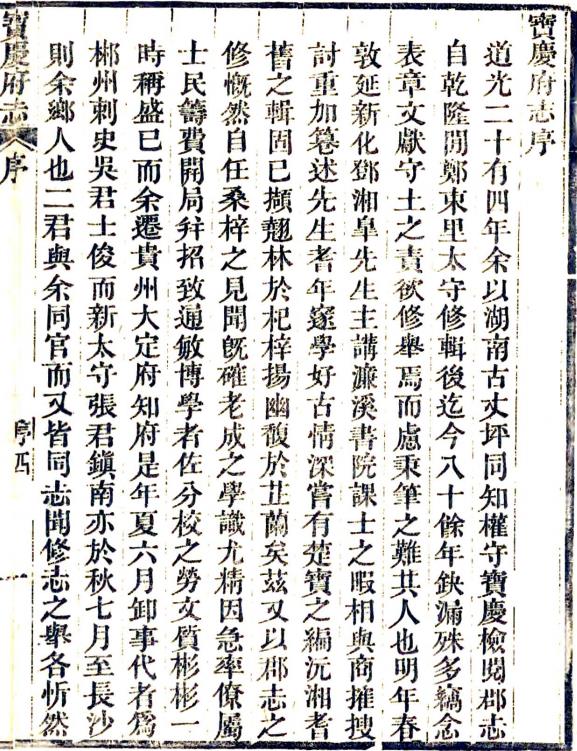 寶慶府志序
道光二十有四年余以湖南古丈坪同知權守寶慶檢閱郡志
自乾隆閒鄭東里太守修輯後迄今八十餘年鈌漏殊多竊念
表章文獻守土之責欲修舉焉而慮秉筆之難其人也明年春
敦延新化鄧湘臯先生主講濂溪書院課士之暇相與商搉搜
討重加篹述先生耆年邃學好古情深嘗有楚寶之編沅湘耆
舊之輯固已擷翹林於杞梓揚幽馥於茝蘭矣茲又以郡志之
修慨然自任桑梓之見聞旣確老成之學識尤精因急率僚屬
士民籌費開局并招致通敏博學者佐分校之勞文質彬彬一
時稱盛已而余遷貴州大定府知府是年夏六月卸事代者爲
郴州刺史吳君士俊而新太守張君鎮南亦於秋七月至長沙
則余鄉人也二君與余同官而又皆同志聞修志之舉各忻然
寶慶府志
序
序四